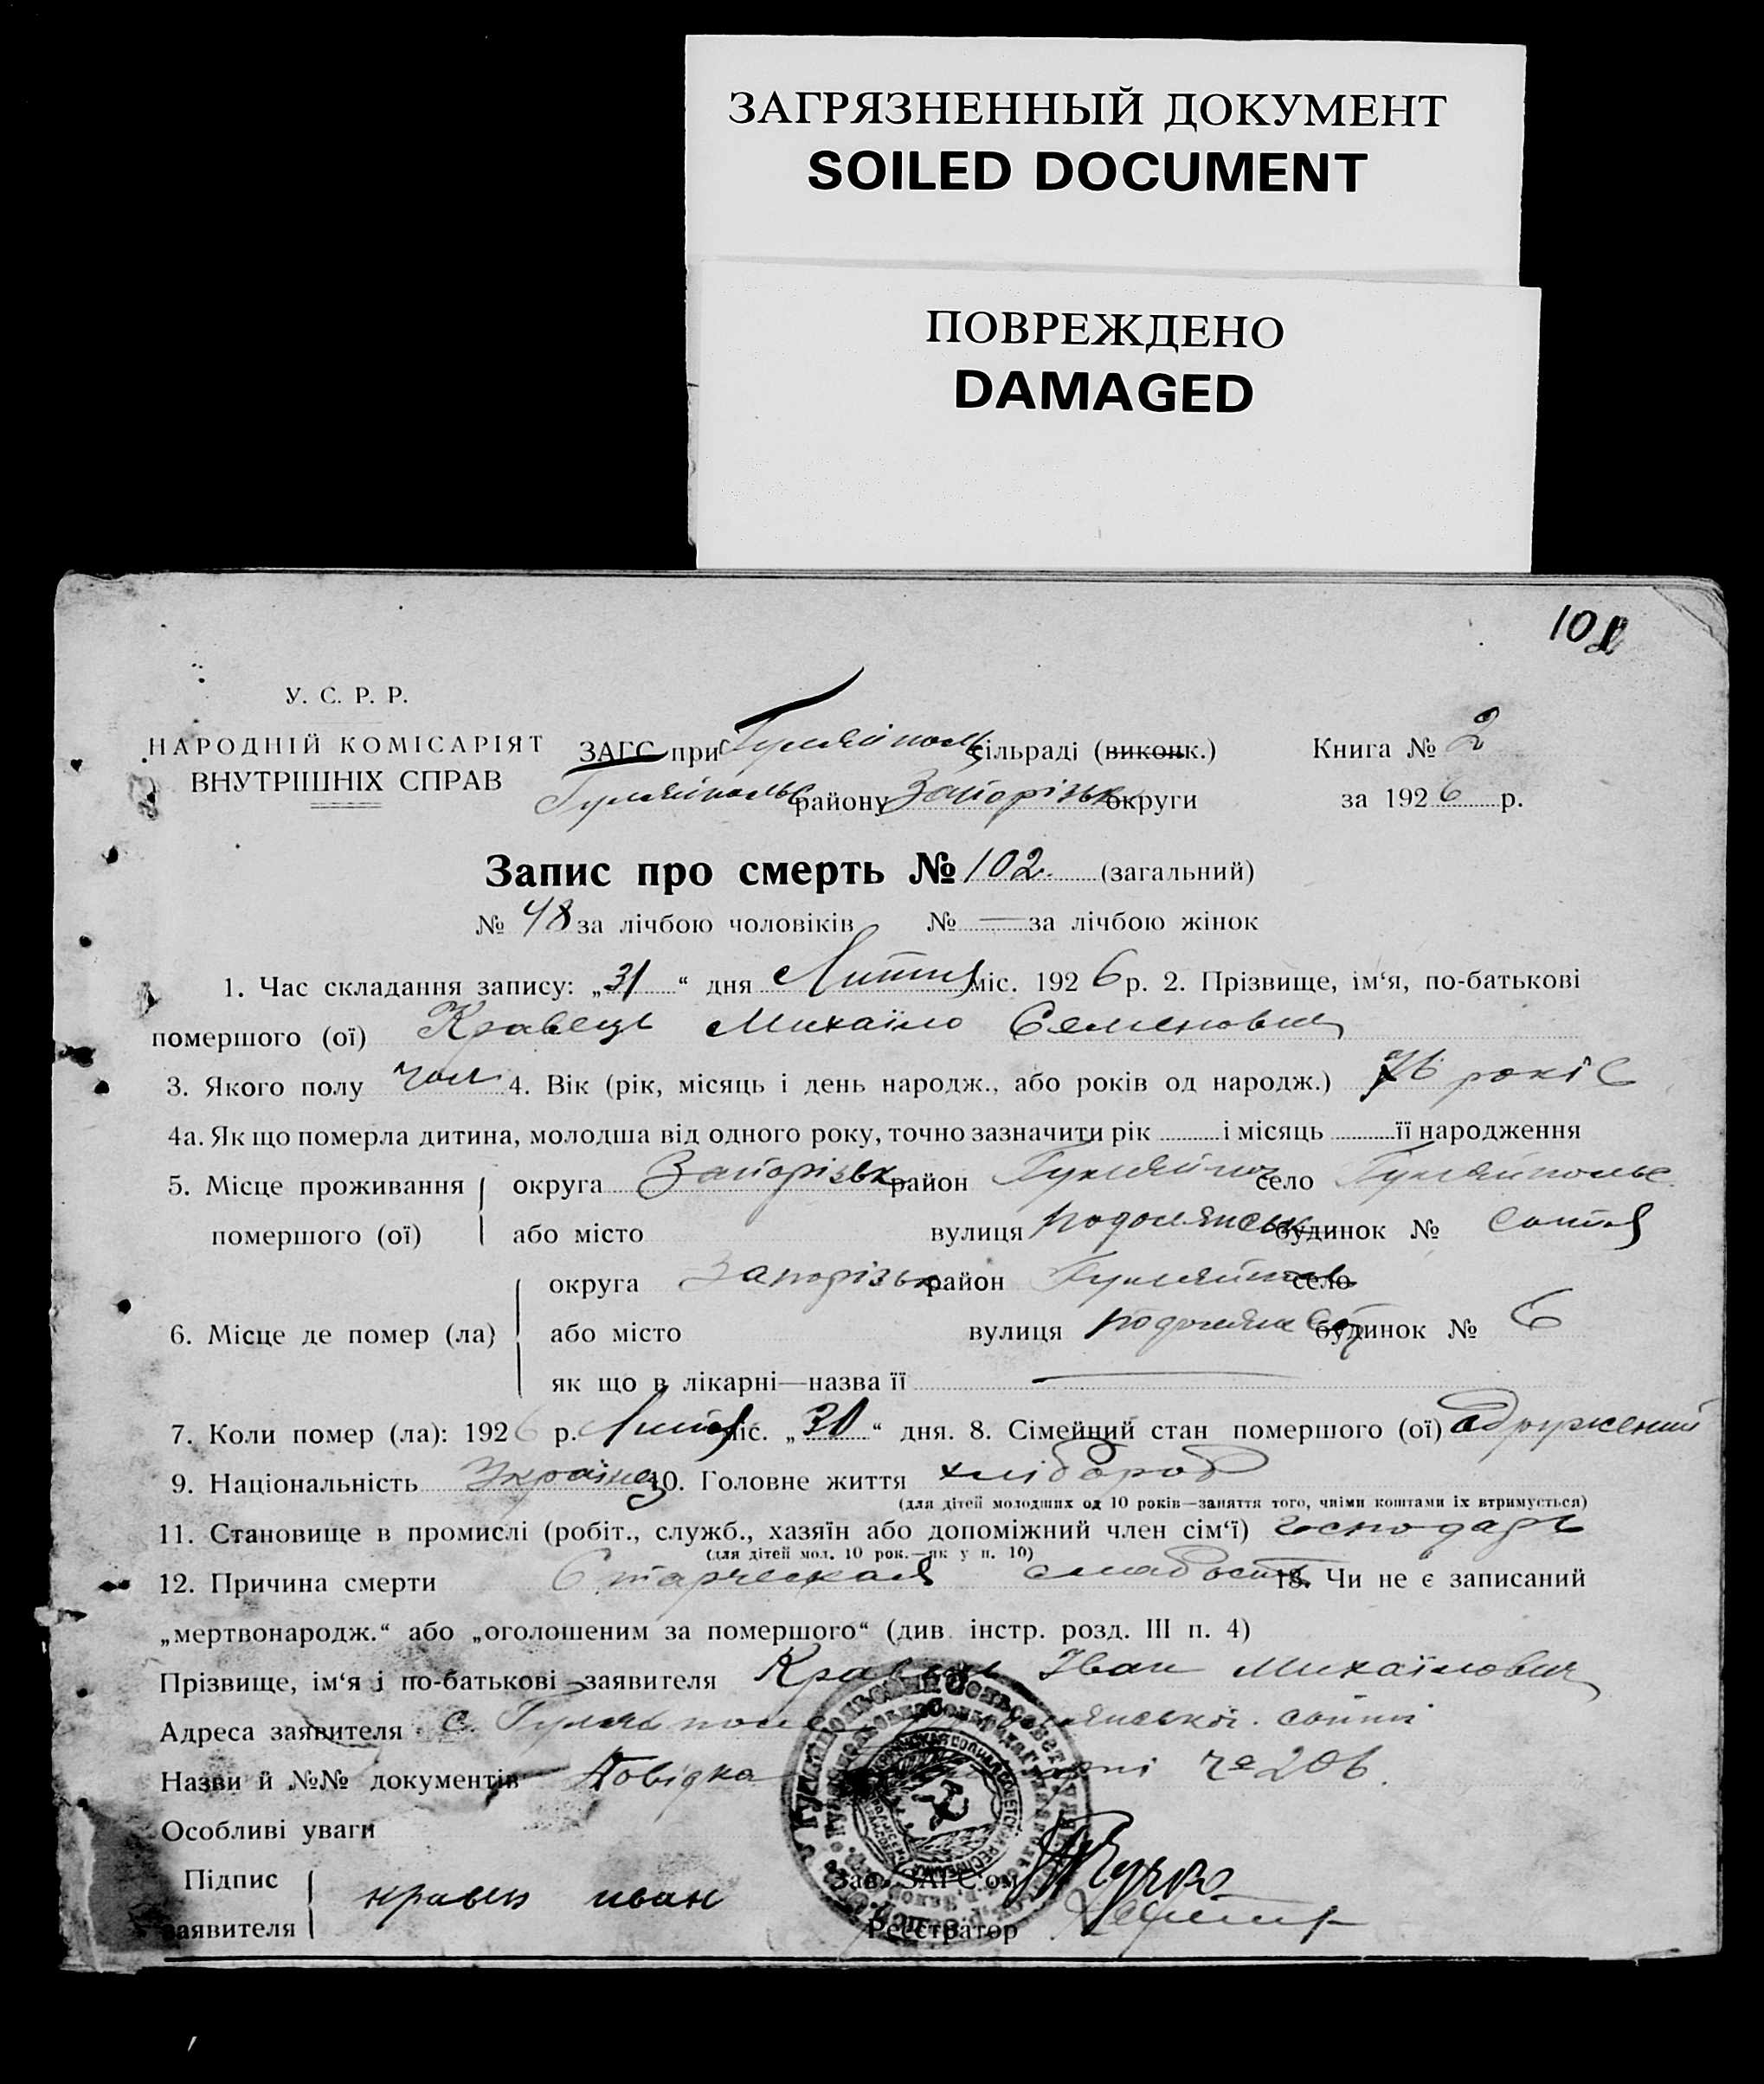 ЗАГРЯЗНЕННЫЙ ДОКУМЕНТ
SOILED DOCUMENT
ПОВРЕЖДЕНО
DAMAGED
102
У. С. Р. Р.
НАРОДНІЙ КОМІСАРІЯТ
ВНУТРІШНІХ СПРАВ
ЗАГС при Гуляйпольс сільраді (виконк.)
Гуляйпольс району Запорізьк округи
Книга № 2
за 1926 р.
Запис про смерть № 102. (загальний)
№ 48 за лічбою чоловіків № — за лічбою жінок
1. Час складання запису: „31“ дня Липня міс. 1926 р. 2. Прізвище, ім‘я, по-батькові
помершого (ої) Кравець Михаїло Семенович
3. Якого полу чол 4. Вік (рік, місяць і день народж., або років од народж.) 76 років
4а. Як що померла дитина, молодша від одного року, точно зазначити рік і місяць її народження
5. Місце проживання округа Запорізьк район Гуляйпол село Гуляйполье
помершого (ої) або місто вулиця подолянськ будинок № сотня
6. Місце де помер (ла) округа Запорізьк район Гуляйпол село
або місто вулиця подолянс будинок № 6
як що в лікарні—назва її —
7. Коли помер (ла): 1926 р. Липня міс. „30“ дня. 8. Сімейний стан помершого (ої) одружений
9. Національність Україна 10. Головне життя хлібороб
(для дітей молодших од 10 років—заняття того, чиїми коштами їх втримується)
11. Становище в промислі (робіт., служб., хазяїн або допоміжний член сім‘ї) господарь
(для дітей мол. 10 рок.—як у п. 10)
12. Причина смерти Старческая слабость 13. Чи не є записаний
„мертвонародж.“ або „оголошеним за помершого“ (див. інстр. розд. III п. 4)
Прізвище, ім‘я і по-батькові заявителя Кравець Іван Михаїлович
Адреса заявителя с. Гуляйполе сотни
Назви й №№ документів Довідка № 206.
Особливі уваги
Підпис заявителя кравец иван
Зав. ЗАГС‘ом
Реєстратор